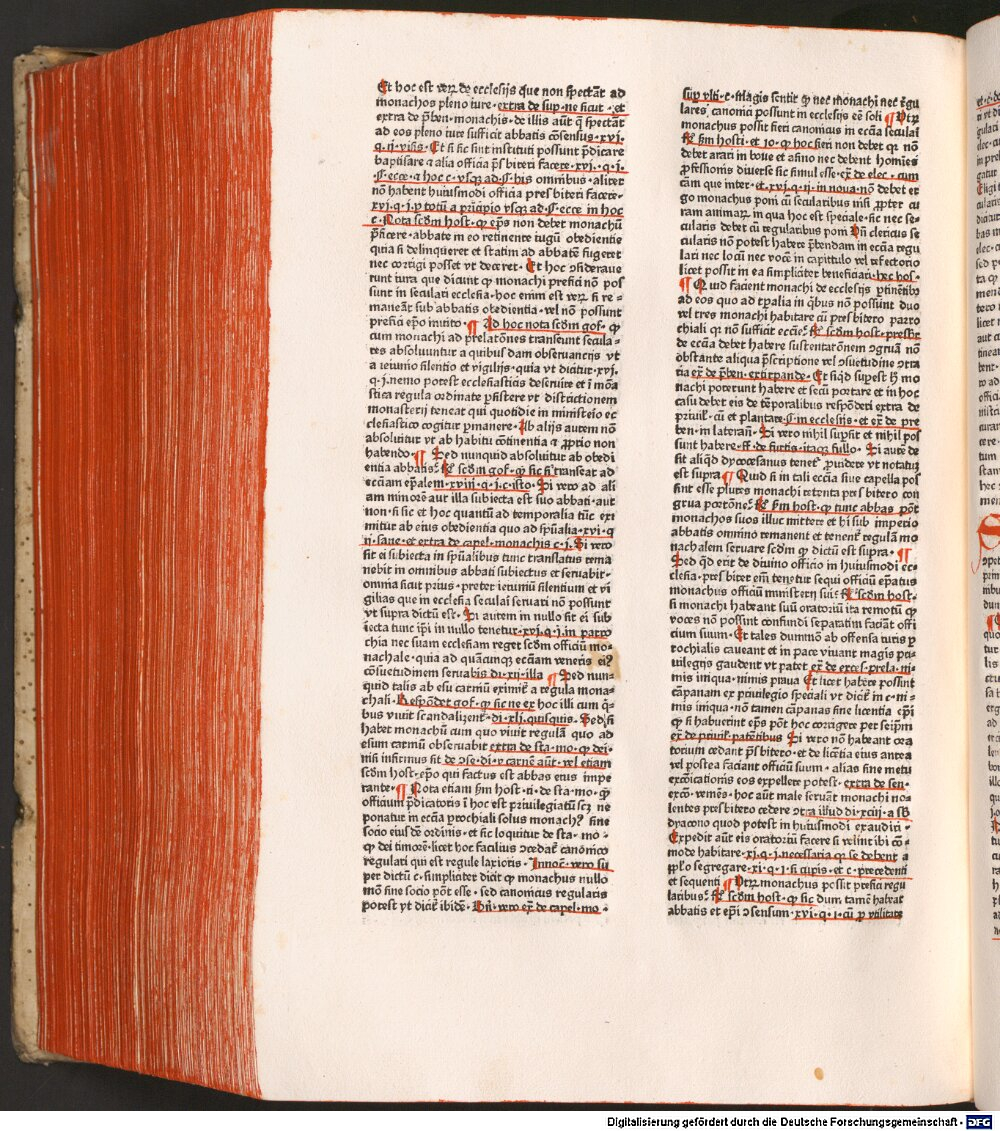 Et hoc est veꝝ de ecclesijs que non spectāt ad
monachos pleno iure · extra de sup · ne sicut · et
extra de p̄ben · monachis · de illis aūt q̄ spectāt
ad eos pleno iure sufficit abbatis cōsensus · xvi ·
q · ij · visis · Et si sic sint instituti possunt p̄dicare
baptisare ⁊ alia officia p̄sbiteri facere · xvi · q · i ·
¶ ecce · ⁊ hoc c · vsqꝫ ad ¶ his omnibus · aliter
nō habent huiusmodi officia presbiteri facere ·
xvi · q · i · p totū a p̄ncipio vsqꝫ ad ¶ ecce in hoc
c · Nota scd̄m host · ꝙ ep̄s non debet monachū
p̄ficere · abbate in eo retinente iugū obedientie
quia si delinqueret et statim ad abbatē fugeret
nec corrigi posset vt deceret · Et hoc ↄsideraue
runt iura que dicunt ꝙ monachi prefici nō pos
sunt in seculari ecclesia · hoc enim est veꝝ si re ·
maneāt sub abbatis obedientia · vel nō possunt
prefici ep̄o inuito · ¶ Ad hoc nota scd̄m gof · ꝙ
cum monachi ad prelatōnes transeunt secula ·
res absoluuntur a quibusdam obseruancijs vt
a ieiunio silentio et vigilijs · quia vt dicitur · xvj ·
q · j · nemo potest ecclesiasticis deseruire et ī mōa
stica regula ordinate p̄sistere vt districtionem
monasterij teneat qui quotidie in ministeio ec
clesiastico cogitur ꝑmanere · Ab alijs autem nō
absoluitur vt ab habitu cōtinentia ⁊ ꝓprio non
habendo · ¶ Sed nunquid absoluitur ab obedi
entia abbatis · R̄ scd̄m gof · ꝙ sic si transeat ad
ecc̄am ep̄alem · xviii · q · i · c · isto · Si vero ad ali
am minorē aut illa subiecta est suo abbati · aut
non · si sic et hoc quantū ad temporalia tūc exi
mitur ab eius obedientia quo ad sp̄ualia · xvi · q
ij · sane · et extra de capel · monachis c · j · Si vero
sit ei subiecta in sp̄ualibus tunc translatus rema
nebit in omnibus abbati subiectus et seruabit ·
omnia sicut prius · preter ieiunū silentium et vi
gilias que in ecclesia seculai seruari nō possunt
vt supra dictū est · Si autem in nullo sit ei sub
iecta tunc ip̄i in nullo tenetur · xvi · q · j · in parro
chia nec suam ecclesiam reget scd̄m officiū mo ·
nachale · quia ad quācunqꝫ ecc̄am veneris ei⁹
cōsuetudinem seruabis di · xij · illa ¶ Sed nun ·
quid talis ab esu carniū eximit̄ a regula mona ·
chali · Respōdet gof · ꝙ sic ne ex hoc illi cum q̄ ·
bus viuit scandalizent̄ · di · xli · quisquis · Sed si
habet monachū cum quo viuit regulā quo ad
esum carniū obseruabit extra de sta · mo · ꝙ dei ·
nisi infirmus sit de ↄse · di · v carnē aūt · vel etiam
scd̄m host · ep̄o qui factus est abbas eius impe
rante · ¶ Nota etiam s̄m host · ti · de sta · mo · ꝙ
officium p̄dicatoris ī hoc est priuilegiatū scꝫ ne
ponatur in ecc̄a prochiali solus monach⁹ sine
socio eiusdē ordinis · et sic loquitur de sta · mo ·
ꝙ dei timorē · licet hoc facilius ↄcedat̄ canonico
regulari qui est regule laxioris · Innoc̄ · vero su
per dictū c · simpliciter dicit ꝙ monachus nullo
mō sine socio pōt esse · sed canonicus regularis
potest vt dicit̄ ibidē · Hn̄ · vero ex̄ de capel · mo ·
sup vlti · c · magis sentit ꝙ nec monachi nec regu
lares canonici possunt in ecclesijs eē soli ¶ Vtꝝ
monachus possit fieri canonicus in ecc̄a seculai
R̄ s̄m hosti · et io · ꝙ hoc fieri non debet qꝛ nō
debet arari in boue et asino nec debent homīes
ꝓfessionis diuerse sic simul esse · ex̄ de elec · cum
cām que inter · et · xvi · q · ij · in noua · nō debet er
go monachus poni cū secularibus nisi ꝓpter cu
ram animaꝝ in qua hoc est speciale · sic nec se ·
cularis debet cū regularibus poni Vn̄ clericus se
cularis nō potest habere p̄bendam in ecc̄a regu
lari nec locū nec vocē in capittulo vel refectorio
licet possit in ea simpliciter beneficiari · hec hos ·
¶ Quid facient monachi de ecclesijs ꝑtinētibꝰ
ad eos quo ad tꝑalia in q̄bus nō possunt duo
vel tres monachi habitare cū presbitero parro
chiali qꝛ nō sufficit ecc̄ie · R̄ scd̄m host · presbit̄
de ecc̄a debet habere sustentatōnem ↄgruā nō
obstante aliqua p̄scriptione vel ↄsuetudine ↄtra
ria ex̄ de p̄ben · extirpande · Et siqd̄ supest h̄ mo
nachi poterunt habere et secū portare et in hoc
casu debet eis de tēporalibus respōderi extra de
priuil · cū et plantare ¶ in ecclesijs · et ex̄ de pre
ben · in laterañ · Si vero nihil supsit et nihil pos
sunt habere · ff · de furtis · itaqꝫ fullo · Si aute de
sit aliqd̄ dyocesanus tenet̄ ꝓuidere vt notatur
est supra ¶ Quid si in tali ecc̄ia siue capella pos
sint esse plures monachi retenta presbitero con
grua portōne · R̄ s̄m host · ꝙ tunc abbas pōt
monachos suos illuc mittere et hi sub imperio
abbatis omnino remanent et tenent̄ regulā mo
nachalem seruare scd̄m ꝙ dictū est supra · ¶
Sed qd̄ erit de diuino officio in huiusmodi ec ·
clesia · presbiter em̄ tenetur sequi officiū ep̄atus
monachus officiū monasterij sui · R̄ scd̄m host ·
si monachi habeant suū oratoriū ita remotū ꝙ
voces nō possint confundi separatim faciāt offi
cium suum · Et tales dummō ab offensa iuris p
rochialis caueant et in pace viuant magis pri ·
uilegijs gaudent vt patet ex̄ de exces · prela · ni ·
mis iniqua · nimis praua Et licet habere possint
cāpanam ex priuilegio speciali vt dicit̄ in c · ni ·
mis iniqua · nō tamen cāpanas sine licentia ep̄i
ꝙ si habuerint ep̄s pōt hoc corrigere per seip̄m
ex̄ de priuil · patētibus Si vero nō habeant ora
torium cedant p̄sbitero · et de licētia eius antea
vel postea faciant officiū suum · alias sine metu
excōicationis eos expellere potest · extra de sen ·
excō · veniēs · hoc aūt male seruāt monachi no ·
lentes presbitero cedere ↄtra illud di · xciij · a sb̄
dyacono quod potest in huiusmodi exaudiri ·
Expedit aūt eis oratoriū facere si velint ibi cō ·
mode habitare · xj · q · j · necessaria qꝛ se debent a
ꝓplo segregare · xj · q · j · si cupis · et c · precedenti
et sequenti ¶ Vtꝝ monachus possit prefici regu
laribus · R̄ scd̄m host · ꝙ sic dum tamē habeat
abbatis et ep̄i ↄsensum · xvi · q · i · cū p vtilitate
Digitalisierung gefördert durch die Deutsche Forschungsgemeinschaft - DFG